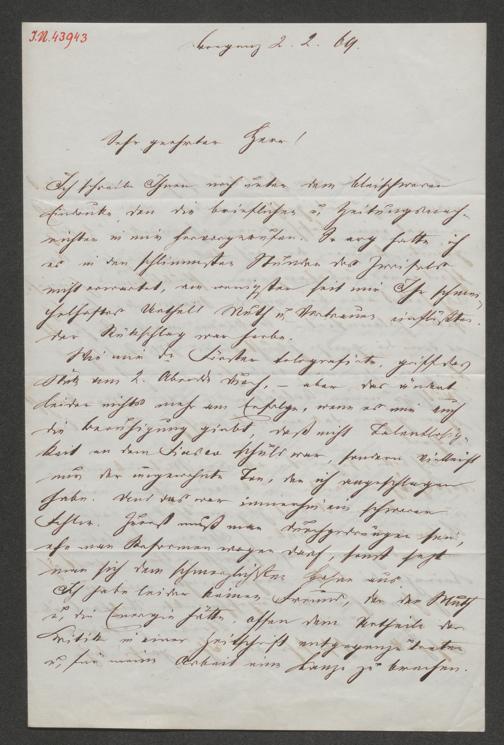 I.N. 43943
Bregenz 2. 2. 69.
Sehr geehrter Herr!
Ich schreibe Ihnen noch unter dem bleischweren
Eindrucke, den die brieflichen u. Zeitungsnach-
richten in mir hervorgerufen. So arg hatte ich
es in den schlimmsten Stunden des Zweifels
nicht erwartet, am wenigsten seit mir Ihr schmei-
chelhaftes Urtheil Muth u. Vertrauen einflößte.
Der Rückschlag war herbe.
Wie mir die Förster telegrafirte, griff das
Stück am 2. Abende durch, – aber das ändert
leider nichts mehr am Erfolge, wenn es mir auch
die Beruhigung giebt, daß nicht Talentlosig-
keit an dem Fiasco schuld war, sondern vielleicht
nur der ungewohnte Ton, den ich angeschlagen
habe. Und das war immerhin ein schwerer
Fehler. Zuerst muß man durchgedrungen sein,
ehe man Reformen wagen darf, sonst setzt
man sich dem schmerzlichsten Hohne aus.
Ich habe leider keinen Freund, der den Muth
u. die Energie hätte, offen dem Urtheile der
Kritik in einer Zeitschrift entgegenzutreten
u. für meine Arbeit eine Lanze zu brechen.